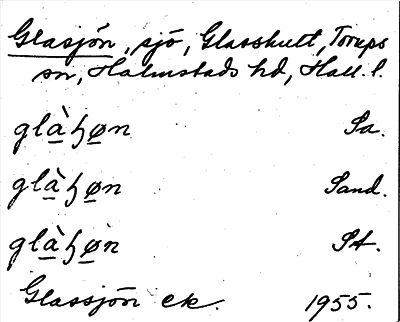 Glasjön, sjö, Glasshult, Torups
sn, Halmstads hd, Hall. l.
glàɧøn Sa.
glàɧøn Sand.
glàɧøn St.
Glassjön ek. 1955.